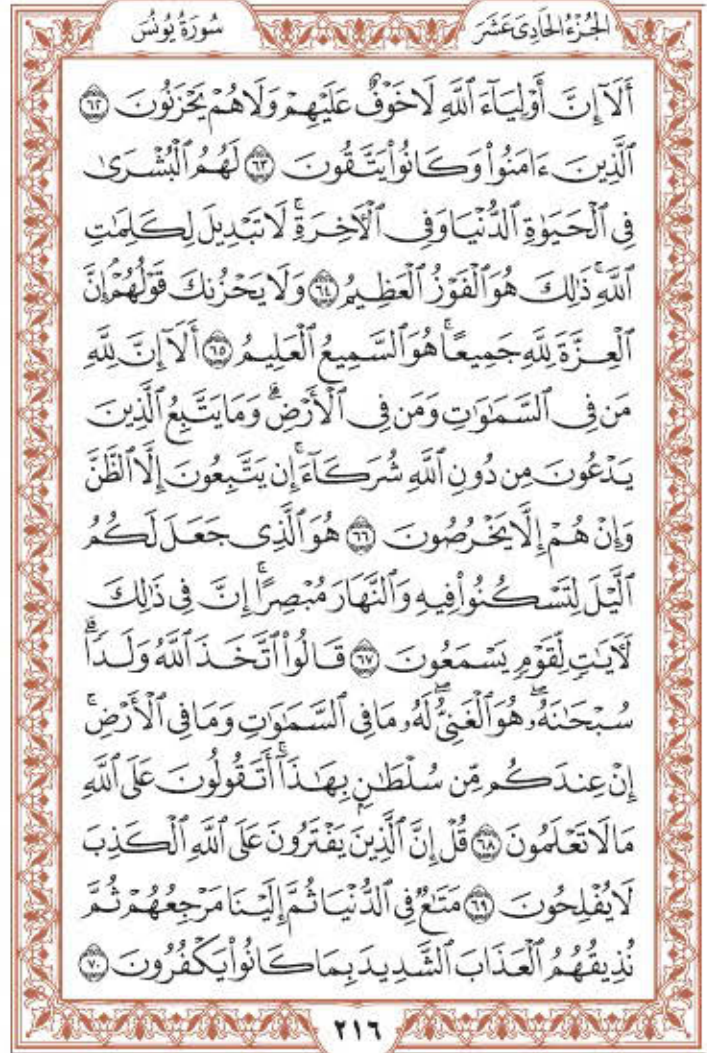 الجُزْءُ الحَادِىَ عَشَرَ
سُورَةُ يُونُسَ
أَلَآ إِنَّ أَوْلِيَآءَ ٱللَّهِ لَا خَوْفٌ عَلَيْهِمْ وَلَا هُمْ يَحْزَنُونَ ٦٢
ٱلَّذِينَ ءَامَنُواْ وَكَانُواْ يَتَّقُونَ ٦٣ لَهُمُ ٱلْبُشْرَىٰ
فِى ٱلْحَيَوٰةِ ٱلدُّنْيَا وَفِى ٱلْأَخِرَةِۚ لَا تَبْدِيلَ لِكَلِمَٰتِ
ٱللَّهِۚ ذَٰلِكَ هُوَ ٱلْفَوْزُ ٱلْعَظِيمُ ٦٤ وَلَا يَحْزُنكَ قَوْلُهُمْۘ إِنَّ
ٱلْعِزَّةَ لِلَّهِ جَمِيعًاۚ هُوَ ٱلسَّمِيعُ ٱلْعَلِيمُ ٦٥ أَلَآ إِنَّ لِلَّهِ
مَن فِى ٱلسَّمَٰوَٰتِ وَمَن فِى ٱلْأَرْضِۗ وَمَا يَتَّبِعُ ٱلَّذِينَ
يَدْعُونَ مِن دُونِ ٱللَّهِ شُرَكَآءَۚ إِن يَتَّبِعُونَ إِلَّا ٱلظَّنَّ
وَإِنْ هُمْ إِلَّا يَخْرُصُونَ ٦٦ هُوَ ٱلَّذِى جَعَلَ لَكُمُ
ٱلَّيْلَ لِتَسْكُنُواْ فِيهِ وَٱلنَّهَارَ مُبْصِرًاۚ إِنَّ فِى ذَٰلِكَ
لَأَيَٰتٍ لِّقَوْمٍ يَسْمَعُونَ ٦٧ قَالُواْ ٱتَّخَذَ ٱللَّهُ وَلَدًاۗ
سُبْحَٰنَهُۥۖ هُوَ ٱلْغَنِىُّۖ لَهُۥ مَا فِى ٱلسَّمَٰوَٰتِ وَمَا فِى ٱلْأَرْضِۚ
إِنْ عِندَكُم مِّن سُلْطَٰنٍۭ بِهَٰذَآۚ أَتَقُولُونَ عَلَى ٱللَّهِ
مَا لَا تَعْلَمُونَ ٦٨ قُلْ إِنَّ ٱلَّذِينَ يَفْتَرُونَ عَلَى ٱللَّهِ ٱلْكَذِبَ
لَا يُفْلِحُونَ ٦٩ مَتَٰعٌ فِى ٱلدُّنْيَا ثُمَّ إِلَيْنَا مَرْجِعُهُمْ ثُمَّ
نُذِيقُهُمُ ٱلْعَذَابَ ٱلشَّدِيدَ بِمَا كَانُواْ يَكْفُرُونَ ٧٠
٢١٦